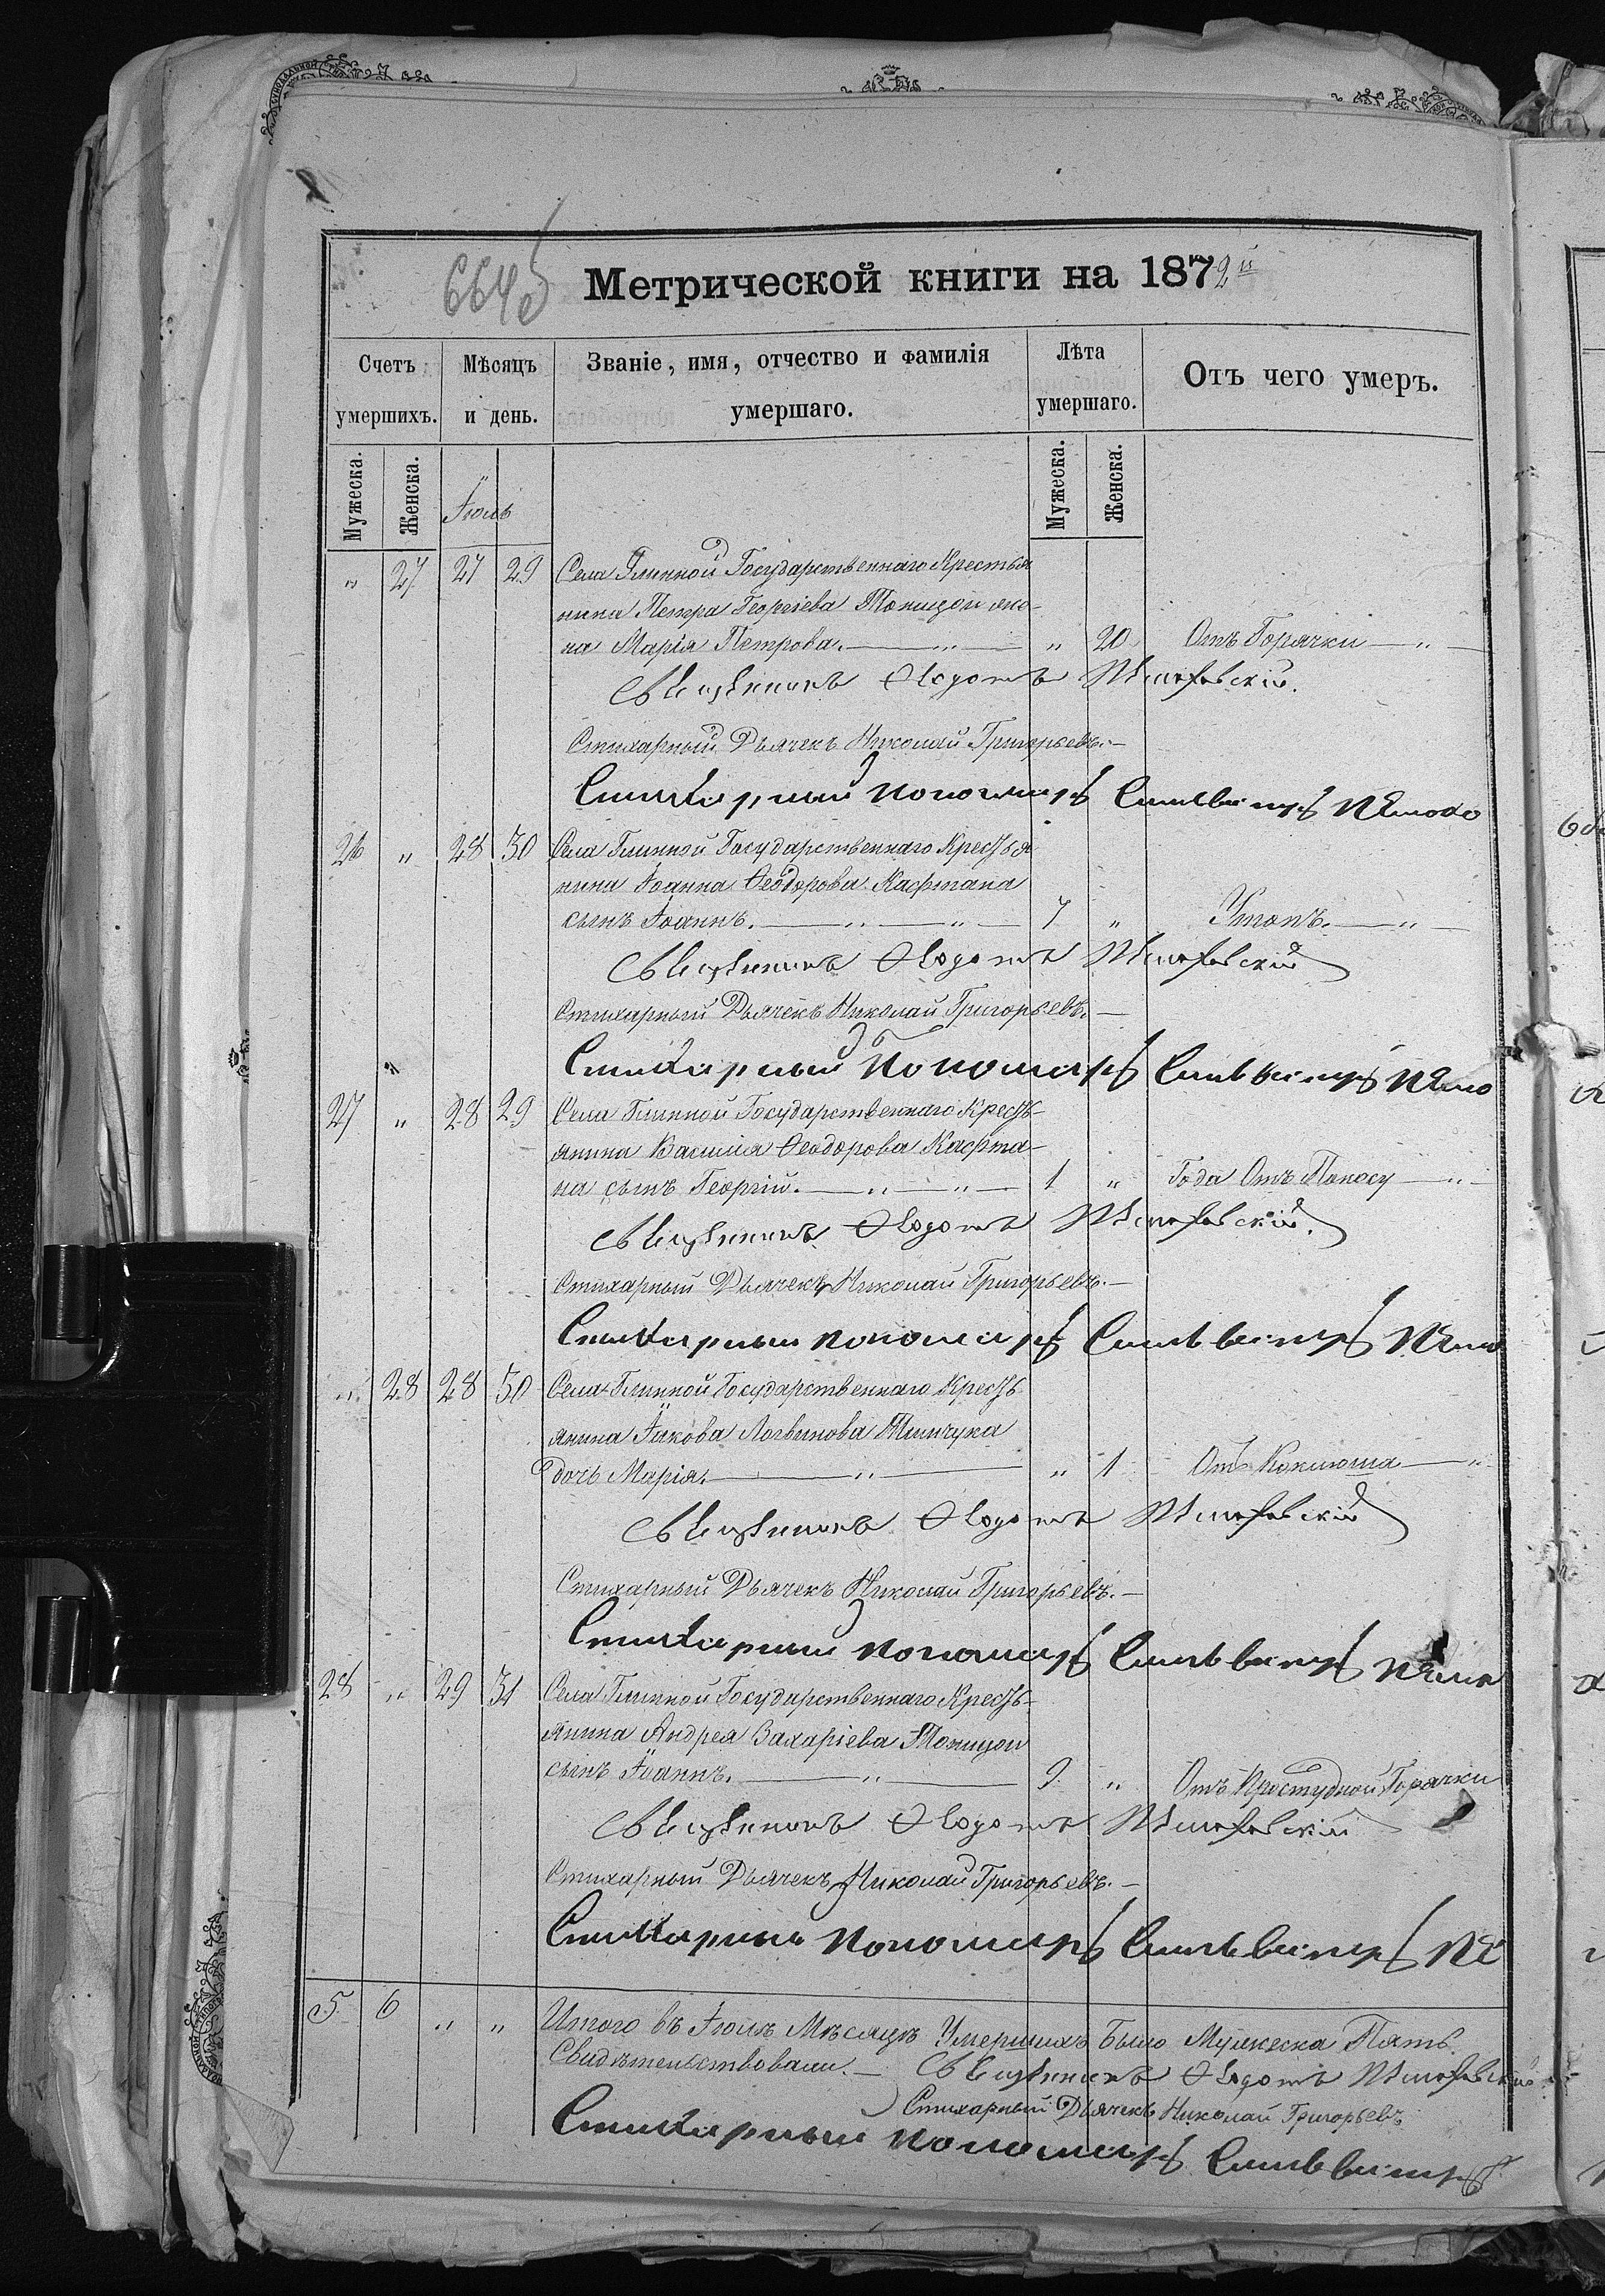 664
Метрической книги на 1872
Счетъ умершихъ.
Мѣсяцъ и день.
Званіе, имя, отчество и фамилія умершаго.
Лѣта умершаго.
Отъ чего умеръ.
Мужеска.
Женска.
Мужеска.
Женска.
Іюль
" 27 27 29 Села Глинной Государственнаго Крестья
нина Петра Георгіева Топицои же-
на Марія Петрова. " 20 Отъ Горячки "
Священникъ Ѳеодотъ
Стихарный Дьячекъ Николай Григорьевъ.
Стихарный пономарь Сильвестръ
26 " 28 30 Села Глинной Государственнаго Крестья
нина Іоанна Ѳеодорова Кафтана
сынъ Іоаннъ. " " 7 " Утопъ. "
Священникъ Ѳеодотъ
Стихарный Дьячекъ Николай Григорьевъ.
Стихарный Пономарь Сильвестръ
"
27 " 28 29 Села Глинной Государственнаго Кресть-
янина Василія Ѳеодорова Кафта-
на сынъ Георгій. " " 1 " Года Отъ Поносу "
Священникъ Ѳеодотъ
Стихарный Дьячекъ Николай Григорьевъ.
Стихарный пономарь Сильвестръ
" 28 28 30 Села Глинной Государственнаго Кресть
янина Іакова Логвинова
дочь Марія. " " 1 Отъ Коклюша "
Священникъ Ѳеодотъ
Стихарный Дьячекъ Николай Григорьевъ.
Стихарный пономарь Сильвестръ
28 " 29 31 Села Глинной Государственнаго Кресть-
янина Андрея Захаріева Топицои
сынъ Іоаннъ. " 9. " Отъ Простудной Горячки
Священникъ Ѳеодотъ
Стихарный Дьячекъ Николай Григорьевъ.
Стихарный пономарь Сильвестръ
5 6 " " Итого въ Іюлѣ Мѣсяцѣ Умершихъ Было Мужеска Пять.
Свидѣтельствовали. Священникъ Ѳеодотъ
Стихарный Дьячекъ Николай Григорьевъ
Стихарный пономарь Сильвестръ